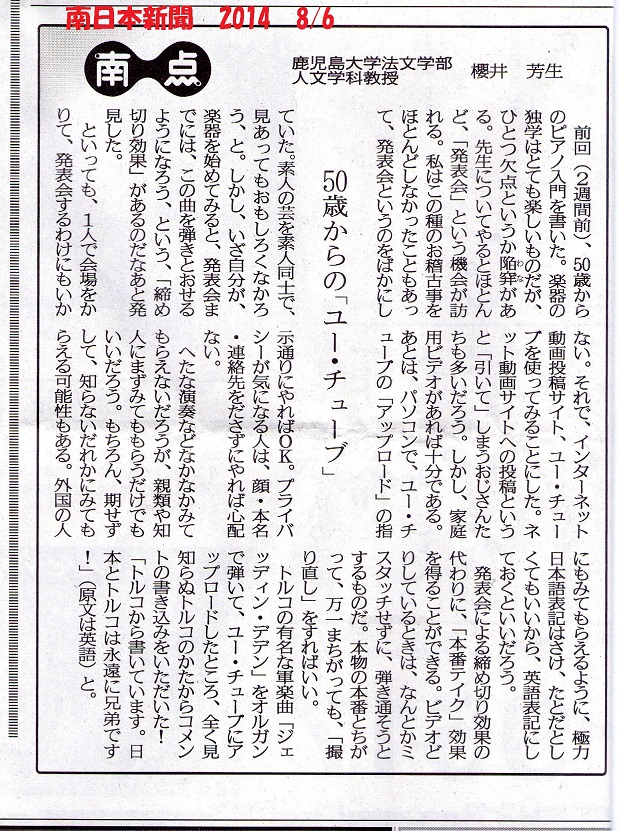 南日本新聞　2014　8/6
南点
鹿児島大学法文学部
人文学科教授
櫻井　芳生
50歳からの「ユー・チューブ」
前回（２週間前）、50歳から
のピアノ入門を書いた。楽器の
独学はとても楽しいものだが、
ひとつ欠点というか陥穽（わな）があ
る。先生についてやるとほとん
ど、「発表会」という機会が訪
れる。私はこの種のお稽古事を
ほとんどしなかったこともあっ
て、発表会というのをばかにし
ていた。素人の芸を素人同士で、
見あってもおもしろくなかろ
う、と。しかし、いざ自分が、
楽器を始めてみると、発表会ま
でには、この曲を弾きとおせる
ようになろう、という、「締め
切り効果」があるのだなあと発
見した。
といっても、１人で会場をか
りて、発表会するわけにもいか
ない。それで、インターネット
動画投稿サイト、ユー・チュー
ブを使ってみることにした。ネ
ット動画サイトへの投稿という
と「引いて」しまうおじさんた
ちも多いだろう。しかし、家庭
用ビデオがあれば十分である。
あとは、パソコンで、ユー・チ
ューブの「アップロード」の指
示通りにやればOK。プライバ
シーが気になる人は、顔・本名
・連絡先をださずにやれば心配
ない。
へたな演奏などなかなかみて
もらえないだろうが、親類や知
人にまずみてもらうだけでも
いいだろう。もちろん、期せず
して、知らないだれかにみても
らえる可能性もある。外国の人
にもみてもらえるように、極力
日本語表記はさけ、たとだとし
くてもいいから、英語表記にし
ておくといいだろう。
発表会による締め切り効果の
代わりに、「本番テイク」効果
を得ることができる。ビデオど
りしているときは、なんとかミ
スタッチせずに、弾き通そうと
するものだ。本物の本番とちが
って、万一まちがっても、「撮
り直し」をすればいい。
トルコの有名な軍楽曲「ジェ
ッディン・デデン」をオルガン
で弾いて、ユー・チューブにア
ップロードしたところ、全く見
知らぬトルコのかたからコメン
トの書き込みをいただいた！
「トルコから書いています。日
本とトルコは永遠に兄弟です
！」（原文は英語）と。